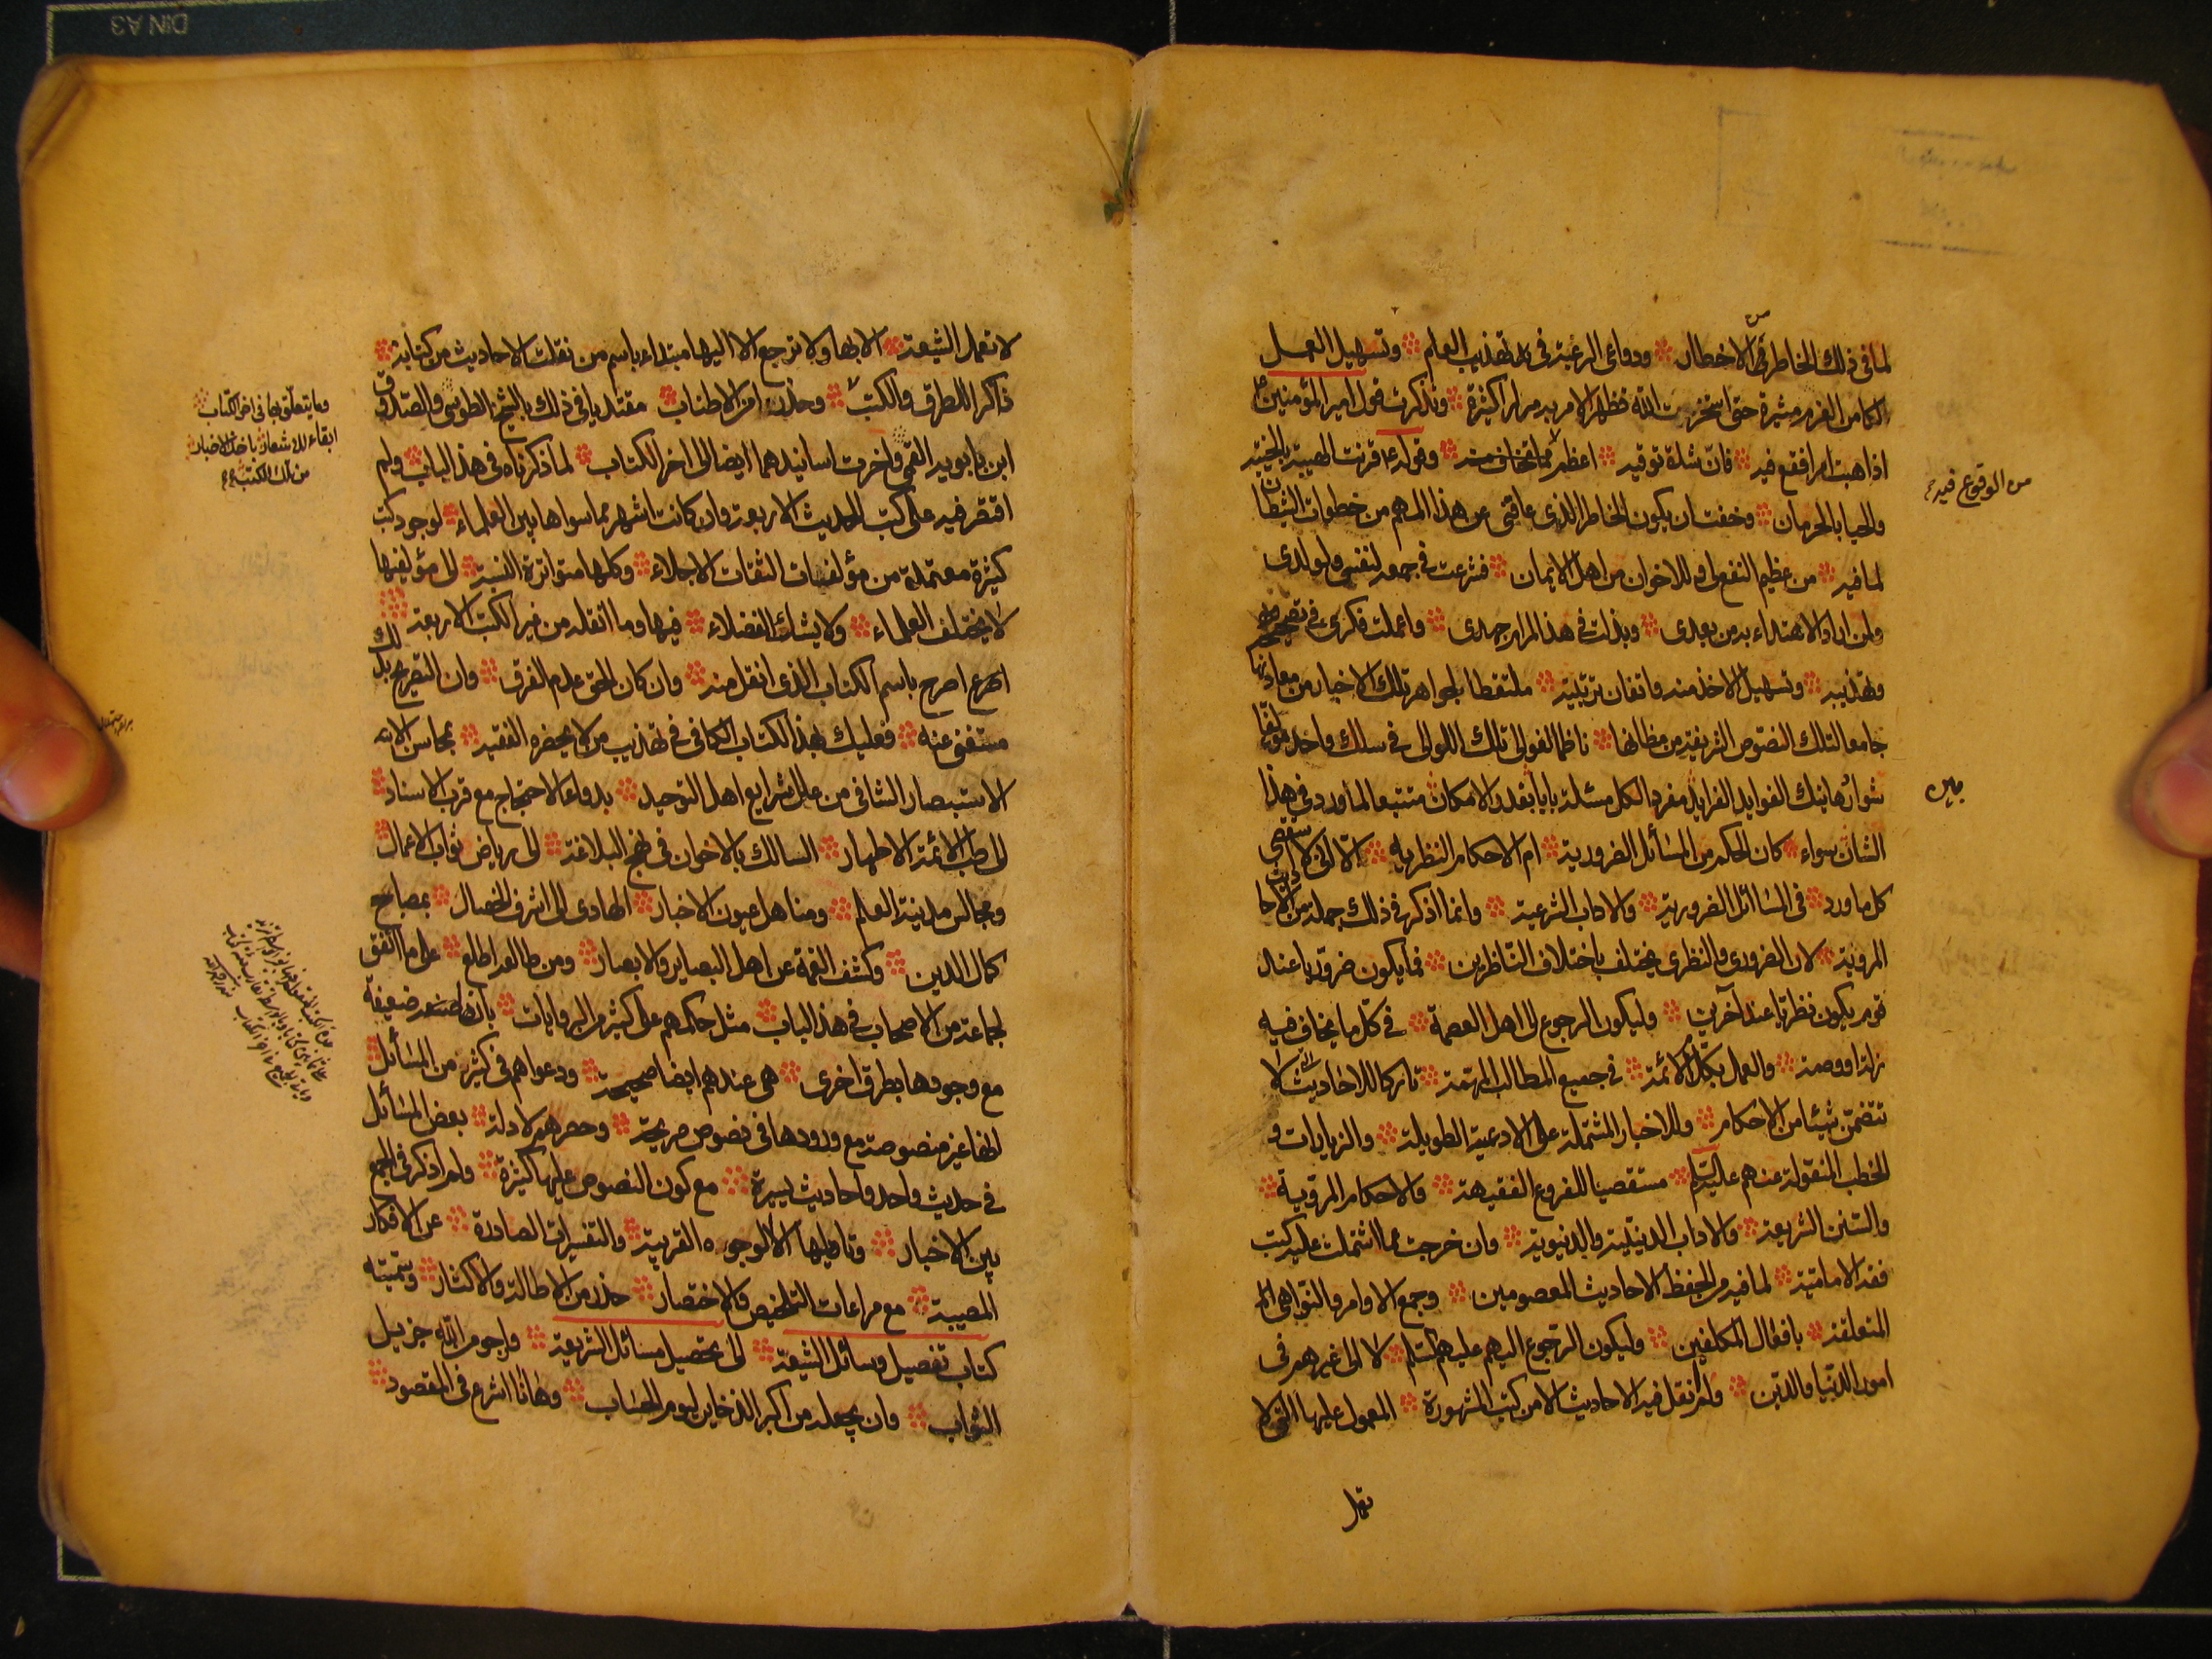 لما فى ذلك الخاطر من الاخطار ودواعى الرغبة فى تهذيب العلم وتسهيل العمل
الكامن الغير مثيرة حتى استخرت الله فظهر الامر به مرارا كثيرة وتذكرت قول امير المؤمنين ع
اذا هبت امرا فقع فيه فان شدة توقيه اعظم مما تخاف منه وقوله ع قرنت الهيبة بالخيبة
من الوقوع فيه
والحيا بالحرمان وخفت ان يكون الخاطر الذى عاقنى عن هذا المهم من خطوات الشيطان
لما فيه من عظيم النفع لى وللاخوان من اهل الايمان فشرعت فى جمعه لنفسى ولولدى
ولمن اراد الاهتداء به من بعدى وبذلت فى هذا المرام جهدى واعملت فكرى فى تصحيحه
وتهذيبه وتسهيل الاخذ منه واتقان ترتيبه ملتقطا لجواهر تلك الاخبار من معادنها
جامعا لتلك النصوص الشريفة من مظانها ناظما لغوالى تلك اللوالى فى سلك واحد مؤلفا
بين
شواردهاتيك الفوايد الفرايد مفردا لكل مسئلة بابا بقدر الامكان متتبعا لما ورد فى هذا
الشان سواء كان الحكم من المسائل الضرورية ام الاحكام النظرية الا انى لا استقصى
كل ما ورد فى المسائل الضرورية والاداب الشرعية وانما اذكر فى ذلك جملة من الاحاديث
المروية لان الضرورى والنظرى يختلف باختلاف الناظرين فما يكون ضروريا عند
قوم يكون نظريا عند آخرين وليكون الرجوع الى اهل العصمة فى كل ما يخاف فيه
زلة او وصمة والعمل بكلام الائمة فى جميع المطالب المهمة تاركا للاحاديث التى لا
تتضمن شيئا من الاحكام وللاخبار المشتملة على الادعية الطويلة والزيارات و
الخطب المنقولة عنهم عليهم السلام مستقصيا للفروع الفقهية والاحكام المروية
والسنن الشرعية والاداب الدينية والدنيوية وان خرجت عما اشتملت عليه كتب
فقه الامامية لما فيه من الحفظ لاحاديث المعصومين وجمع الاوامر والنواهى
المتعلقة بافعال المكلفين وليكون الرجوع اليهم عليهم السلم لا الى غيرهم فى
امور الدنيا والدين ولم نقل فيه الاحاديث الا من كتب المشهورة المعول عليها التى لا
تعمل
لا تعمل الشيعة الا بها ولا ترجع الا اليها مبتداء باسم من نقلت الاحاديث من كتابه
ذاكرا للطرق والكتب وحذرا من الاطناب مقتديا فى ذلك بالشيخ الطوسى والصدوق
وما يتعلق بها فى اخر الكتاب
ابقاء للاشعار باخذ الاخبار
من تلك الكتب
ابن بابويه القمى واخرت اسانيدهما ايضا الى اخر الكتاب لما ذكرناه فى هذا الباب ولم
اقتصر فيه على كتب الحديث الاربعة وان كانت اشهر مما سواها بين العلماء لوجود كتب
كثيرة معتمدة من مؤلفات الثقات الاجلاء وكلها متواترة النسبة الى مؤلفيها
لا يختلف العلماء ولا يشك الفضلاء فيها وما انقله من غير الكتب الاربعة
اصرح باسم الكتاب الذى انقل منه وان كان الحق عدم الفرق وان التصريح بذلك
مستغنى عنه فعليك بهذا الكتاب الكافى فى تهذيب من لا يحضره الفقيه بمحاسن
الاستبصار الشافى من علل شرايع اهل التوحيد بدواء الاحتجاج مع قرب الاسناد
الى طب الائمة الاطهار السالك بالاخوان فى نهج البلاغة الى رياض ثواب الاعمال
ومجالس مدينة العلم ومناهل عيون الاخبار الهادى الى اشرف الخصال بمصابح
كمال الدين وكشف الغمة عن اهل البصاير والابصار ومن طالعه اطلع على ما اتفق
لجماعة من الاصحاب فى هذا الباب مثل حكمهم على كثير من الروايات بانها ضعيفة
مع وجودها بطرق اخرى هى عندهم ايضا صحيحة ودعواهم فى كثير من المسائل
انها غير منصوصة مع ورودها فى نصوص صريحة وحصرهم لادلة بعض المسائل
فى حديث واحد واحاديث يسيرة مع كون النصوص عليها كثيرة ولم اذكر فى الجمع
بين الاخبار وتاويلها الا الوجوه القريبة والتفسيرات الصادرة عن الافكار
المصيبة مع مراعات التلخيص والاختصار حذرا من الاطالة والاكثار وسميته
كتاب تفصيل وسائل الشيعة الى تحصيل مسائل الشريعة وارجو من الله جزيل
الثواب وان يجعله من اكبر الذخاير ليوم الحساب وها انا اشرع فى المقصود
DIN A3